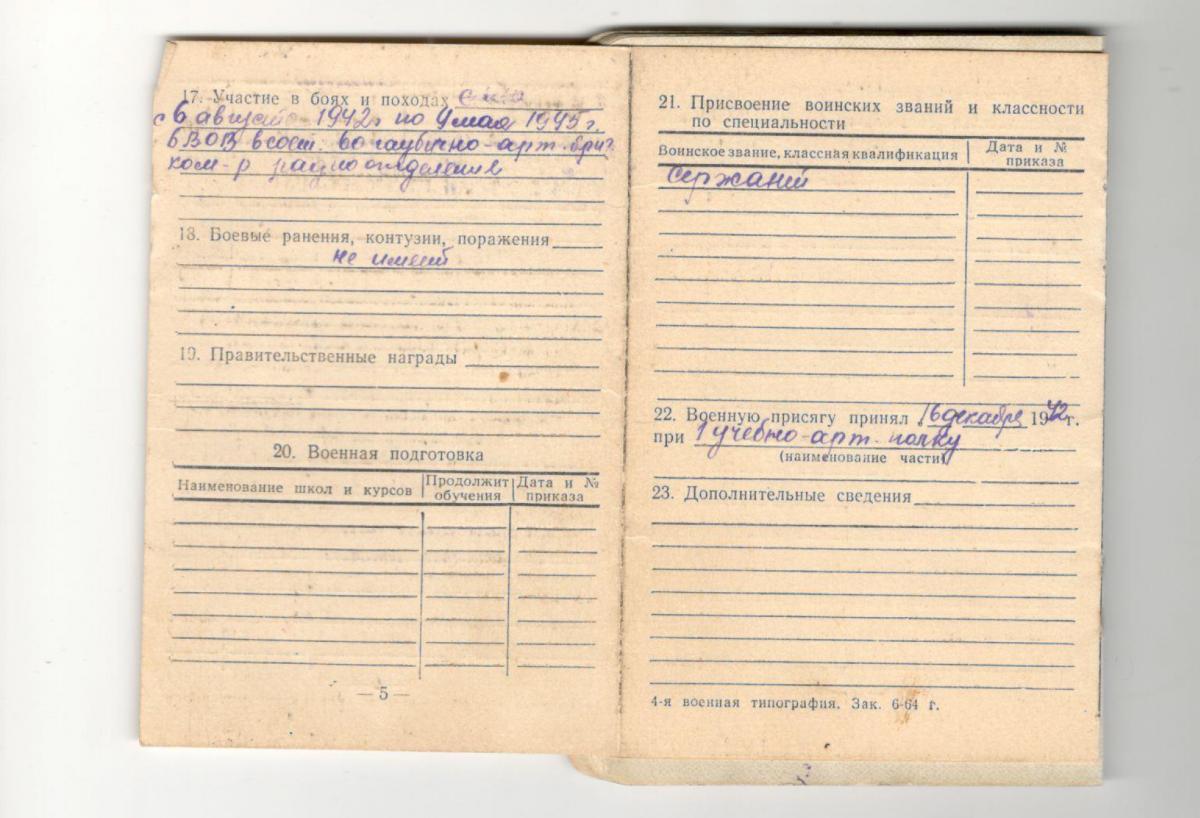 17. Участие в боях и походах
с 6 августа 1942 г по 9 мая 1945 г.
в ВОВ в сост. 60 гаубично-арт. бриг.
ком-р радиоотделения
18. Боевые ранения, контузии, поражения
не имеет
19. Правительственные награды
20. Военная подготовка
Наименование школ и курсов Продолжит обучения Дата и № приказа
— 5 —
21. Присвоение воинских званий и классности
по специальности
Воинское звание, классная квалификация Дата и № приказа
сержант
22. Военную присягу принял 16 декабря 1942 г.
при 1 учебно-арт. полку
(наименование части)
23. Дополнительные сведения
4-я военная типография. Зак. 6-64 г.